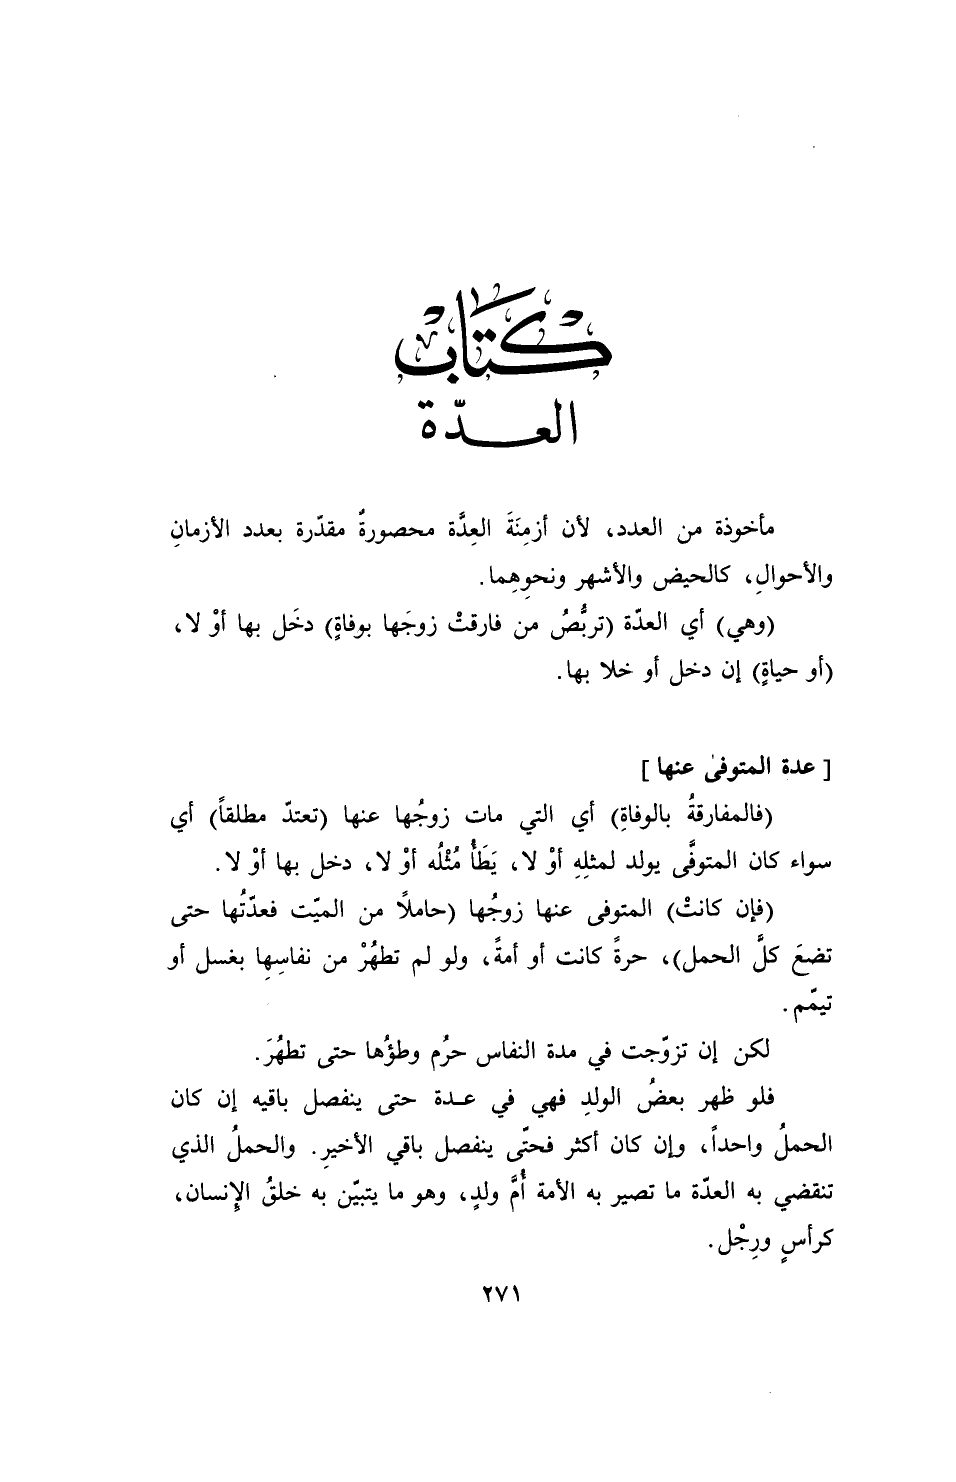 كتاب
العدّة
مأخوذة من العدد، لأن أزمِنَةَ العِدَّة محصورةٌ مقدّرة بعدد الأزمانِ
والأحوالِ، كالحيض والأشهر ونحوِهِما.
(وهي) أي العدّة (تربُّصُ من فارقتْ زوجَها بوفاةٍ) دخَل بها أوْ لا،
(أو حياةٍ) إن دخل أو خلا بها.
[ عدة المتوفىٰ عنها ]
(فالمفارقةُ بالوفاةِ) أي التي مات زوجُها عنها (تعتدّ مطلقاً) أي
سواء كان المتوفَّى يولد لمثلِهِ أوْ لا، يَطَأُ مُثْلُه أوْ لا، دخل بها أوْ لا.
(فإن كانتْ) المتوفى عنها زوجُها (حاملاً من الميّت فعدّتُها حتى
تضعَ كلَّ الحمل)، حرةً كانت أو أمةً، ولو لم تطهُرْ من نفاسِها بغسل أو
تيمّم.
لكن إن تزوّجت في مدة النفاس حرُم وطؤُها حتى تطهُرَ.
فلو ظهر بعضُ الولدِ فهي في عـدة حتى ينفصل باقيه إن كان
الحملُ واحداً، وإن كان أكثر فحتّى ينفصل باقي الأخيرِ. والحملُ الذي
تنقضي به العدّة ما تصير به الأمة أُمَّ ولدٍ، وهو ما يتبيّن به خلقُ الإِنسان،
كرأسٍ ورِجْل.
٢٧١